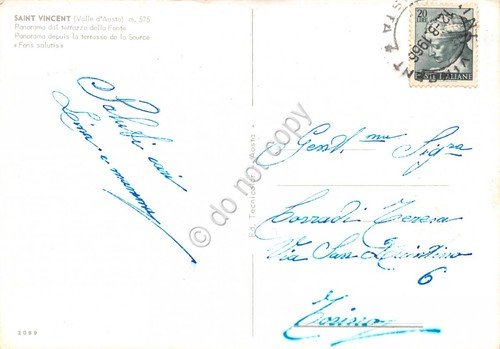 SAINT VINCENT (Valle d'Aosta) m. 575
Panorama dal terrazzo della Fonte
Panorama depuis la terrasse de la Source
« Fons salutis »
Saluti cari
Lina e mamma
20
POSTE ITALIANE
12-8 1966
© do not copy
Gent.ma Sig.ra
Corradi Teresa
Via San Quintino
6
Torino
2099